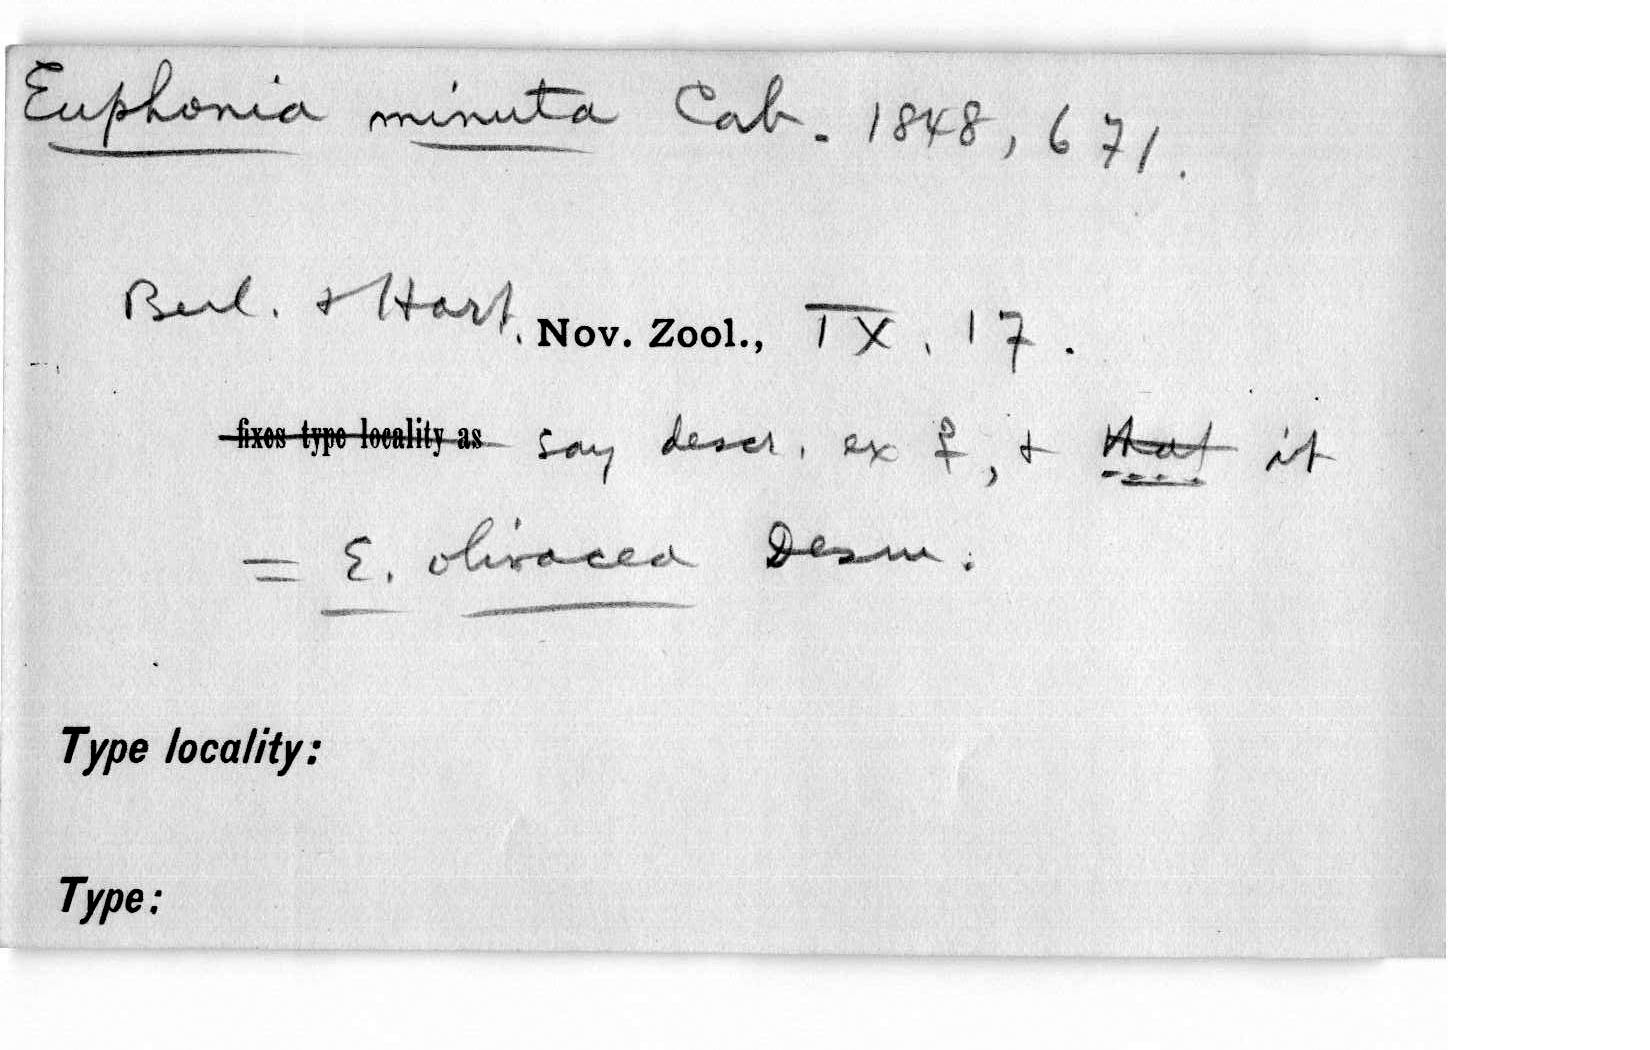 Euphonia minuta Cab. 1848, 671.
Berl. & Hart. Nov. Zool., IX, 17.
fixes type locality as say descr. ex ♀, & that it
= E. olivacea Desm.
Type locality:
Type: